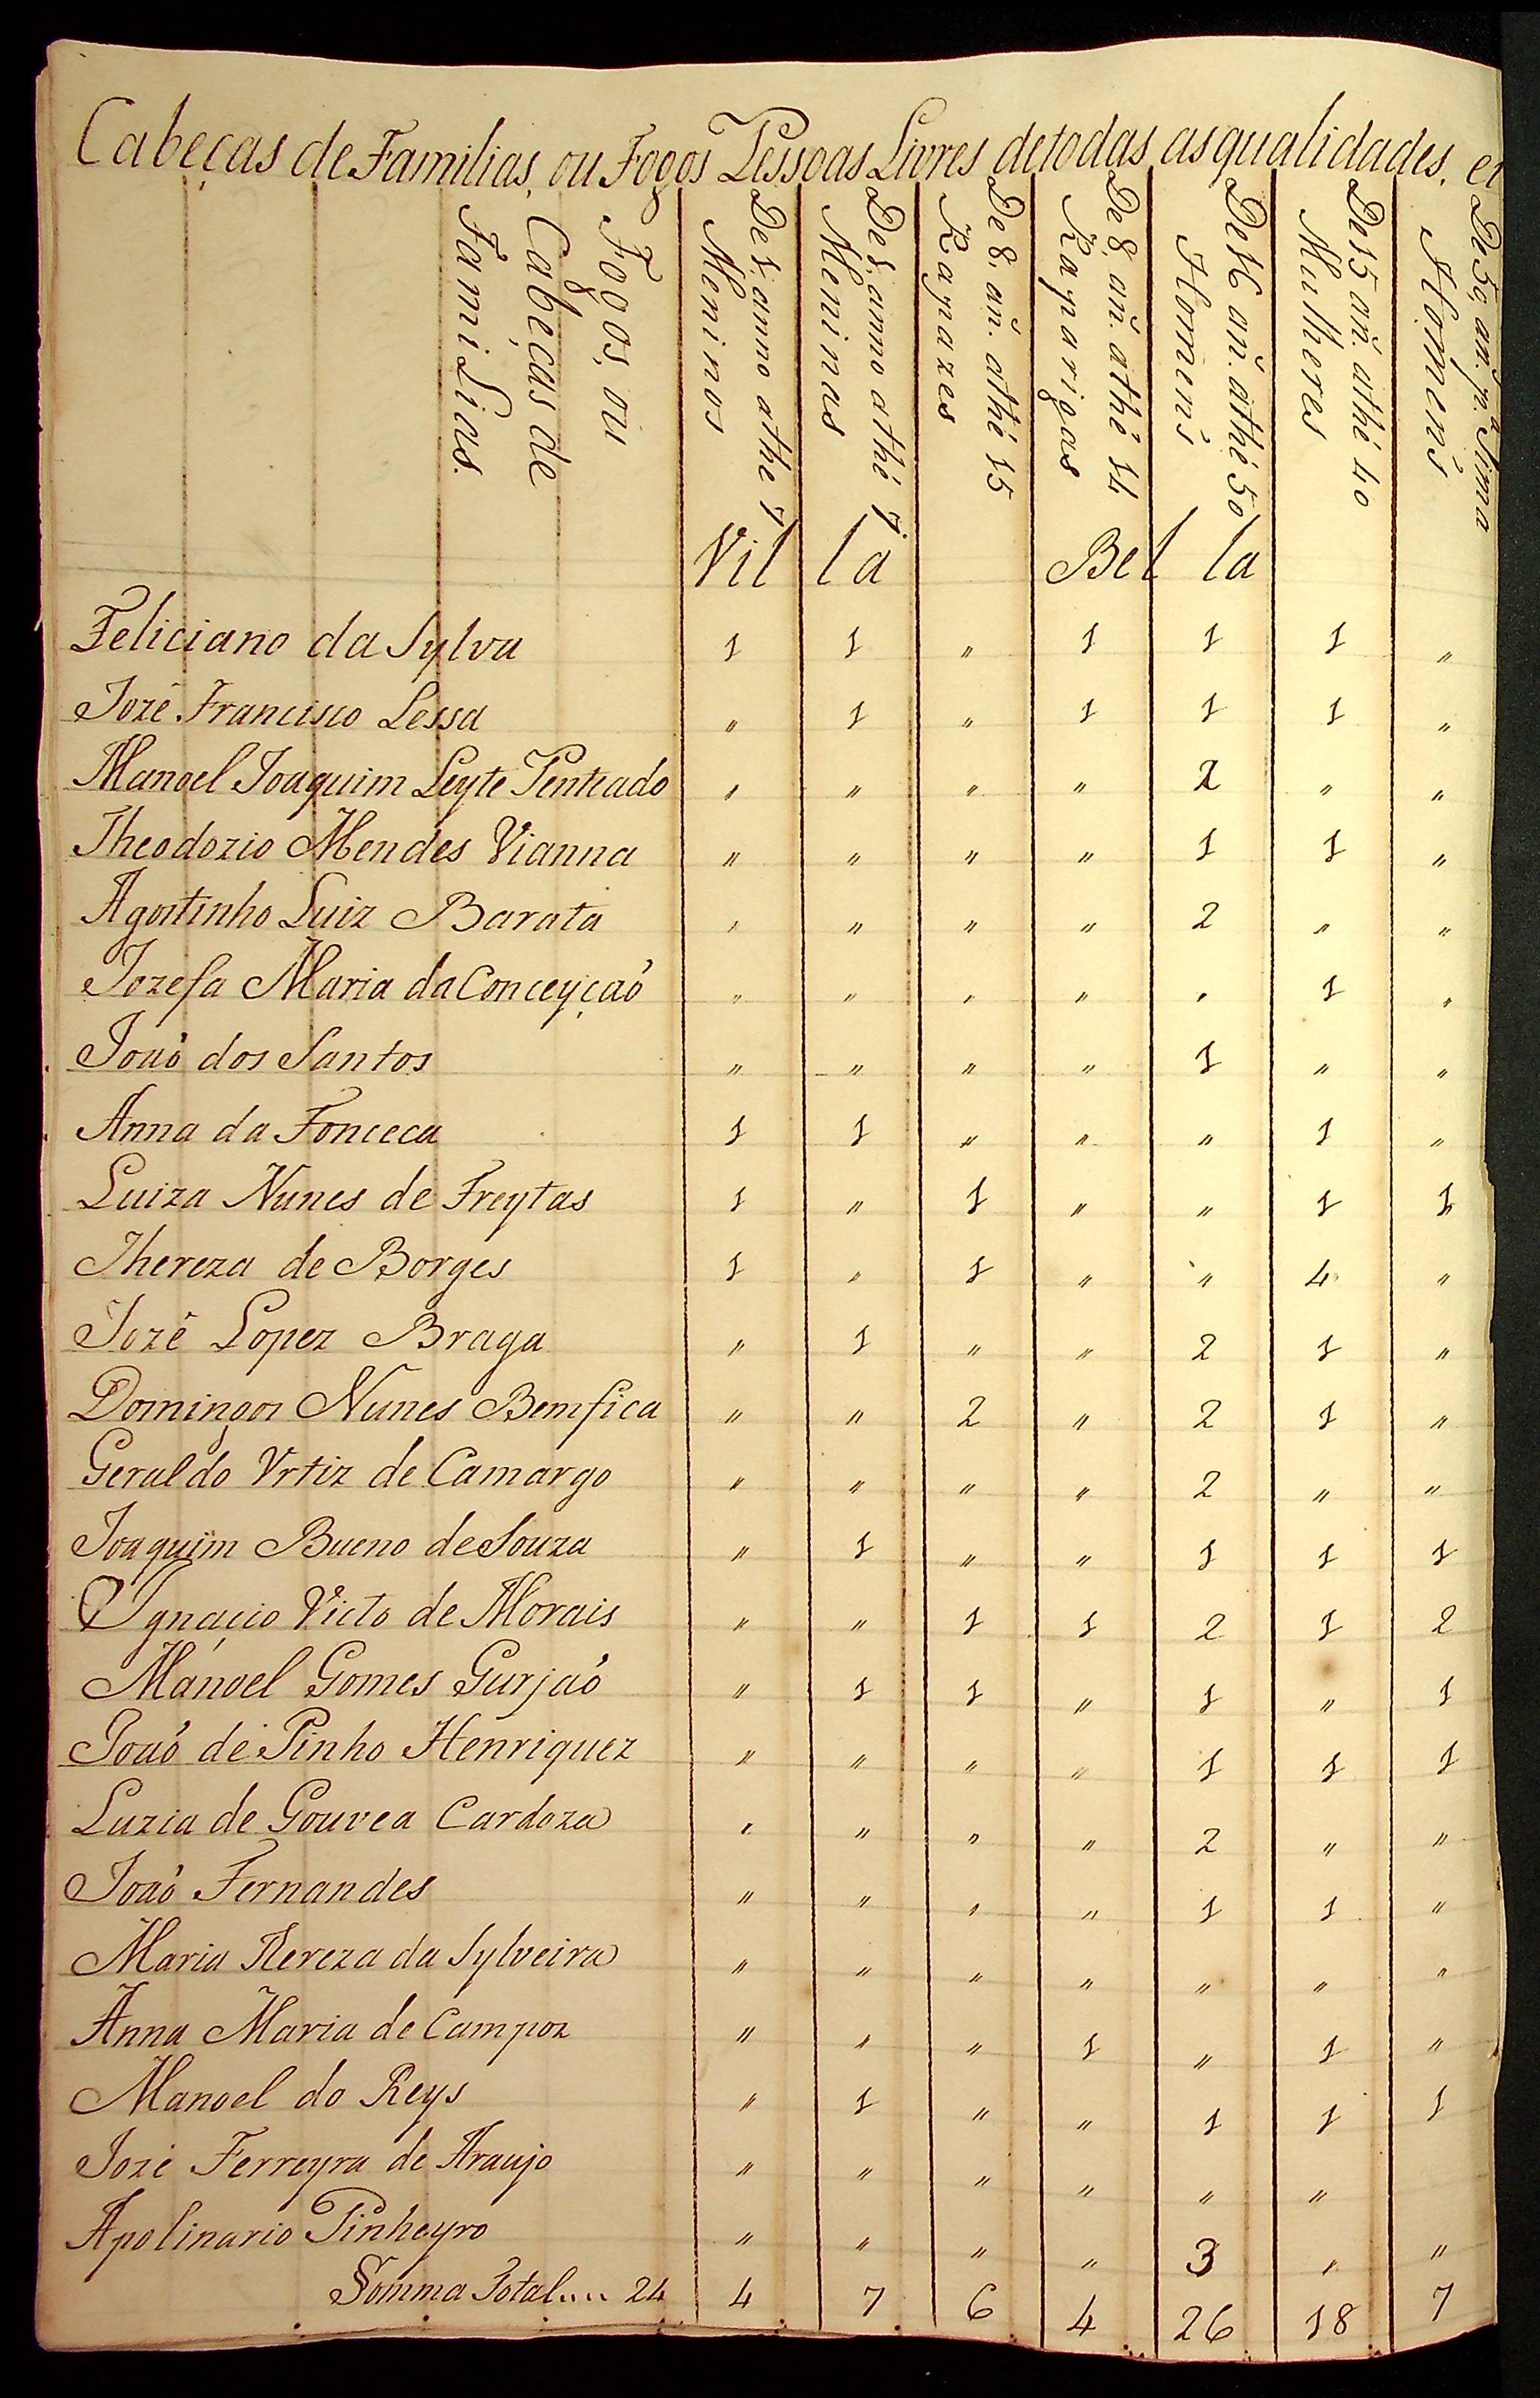 Cabeças de Familias, ou Fogos Pessoas Livres de todas as qualidades, e
Fogos, ou
Cabeças de
Familias.
De 1. anno athe 7
Meninos
De 1. anno athé 7
Meninas
De 8. añ. athé 15
Rapazes
De 8. añ. athé 14
Raparigas
De 16 añ. athé 50
Homens
De 15 añ. athé 40
Mulheres
De 50 an. p.ª Sima
Homens
Villa Bella
Feliciano da Sylva 1 1 " 1 1 1 "
Jozé Francisco Lessa " 1 " 1 1 1 "
Manoel Joaquim Leyte Penteado " " " " 2 " "
Theodozio Mendes Vianna " " " " 1 1 "
Agostinho Luiz Barata " " " " 2 " "
Jozefa Maria da Conceyçaõ " " " " " 1 "
Joaõ dos Santos " " " " 1 " "
Anna da Fonceca 1 1 " " " 1 "
Luiza Nunes de Freytas 1 " 1 " " 1 1
Thereza de Borges 1 " 1 " " 4 "
Jozé Lopez Braga " 1 " " 2 1 "
Domingos Nunes Bemfica " " 2 " 2 1 "
Geraldo Vrtiz de Camargo " " " " 2 " "
Joaquim Bueno de Souza " 1 " " 1 1 1
Ignacio Victo de Morais " " 1 1 2 1 2
Manoel Gomes Gurjaõ " 1 1 " 1 " 1
Joaõ de Pinho Henriquez " " " " 1 1 1
Luzia de Gouvea Cardoza " " " " 2 " "
Joaõ Fernandes " " " " 1 1 "
Maria Thereza da Sylveira " " " " " " "
Anna Maria de Campos " " " 1 " 1 "
Manoel do Reys " 1 " " 1 1 1
Jozé Ferreyra de Araujo " " " " " "
Apolinario Pinheyro " " " " 3 " "
Somma Total.... 24 4 7 6 4 26 18 7